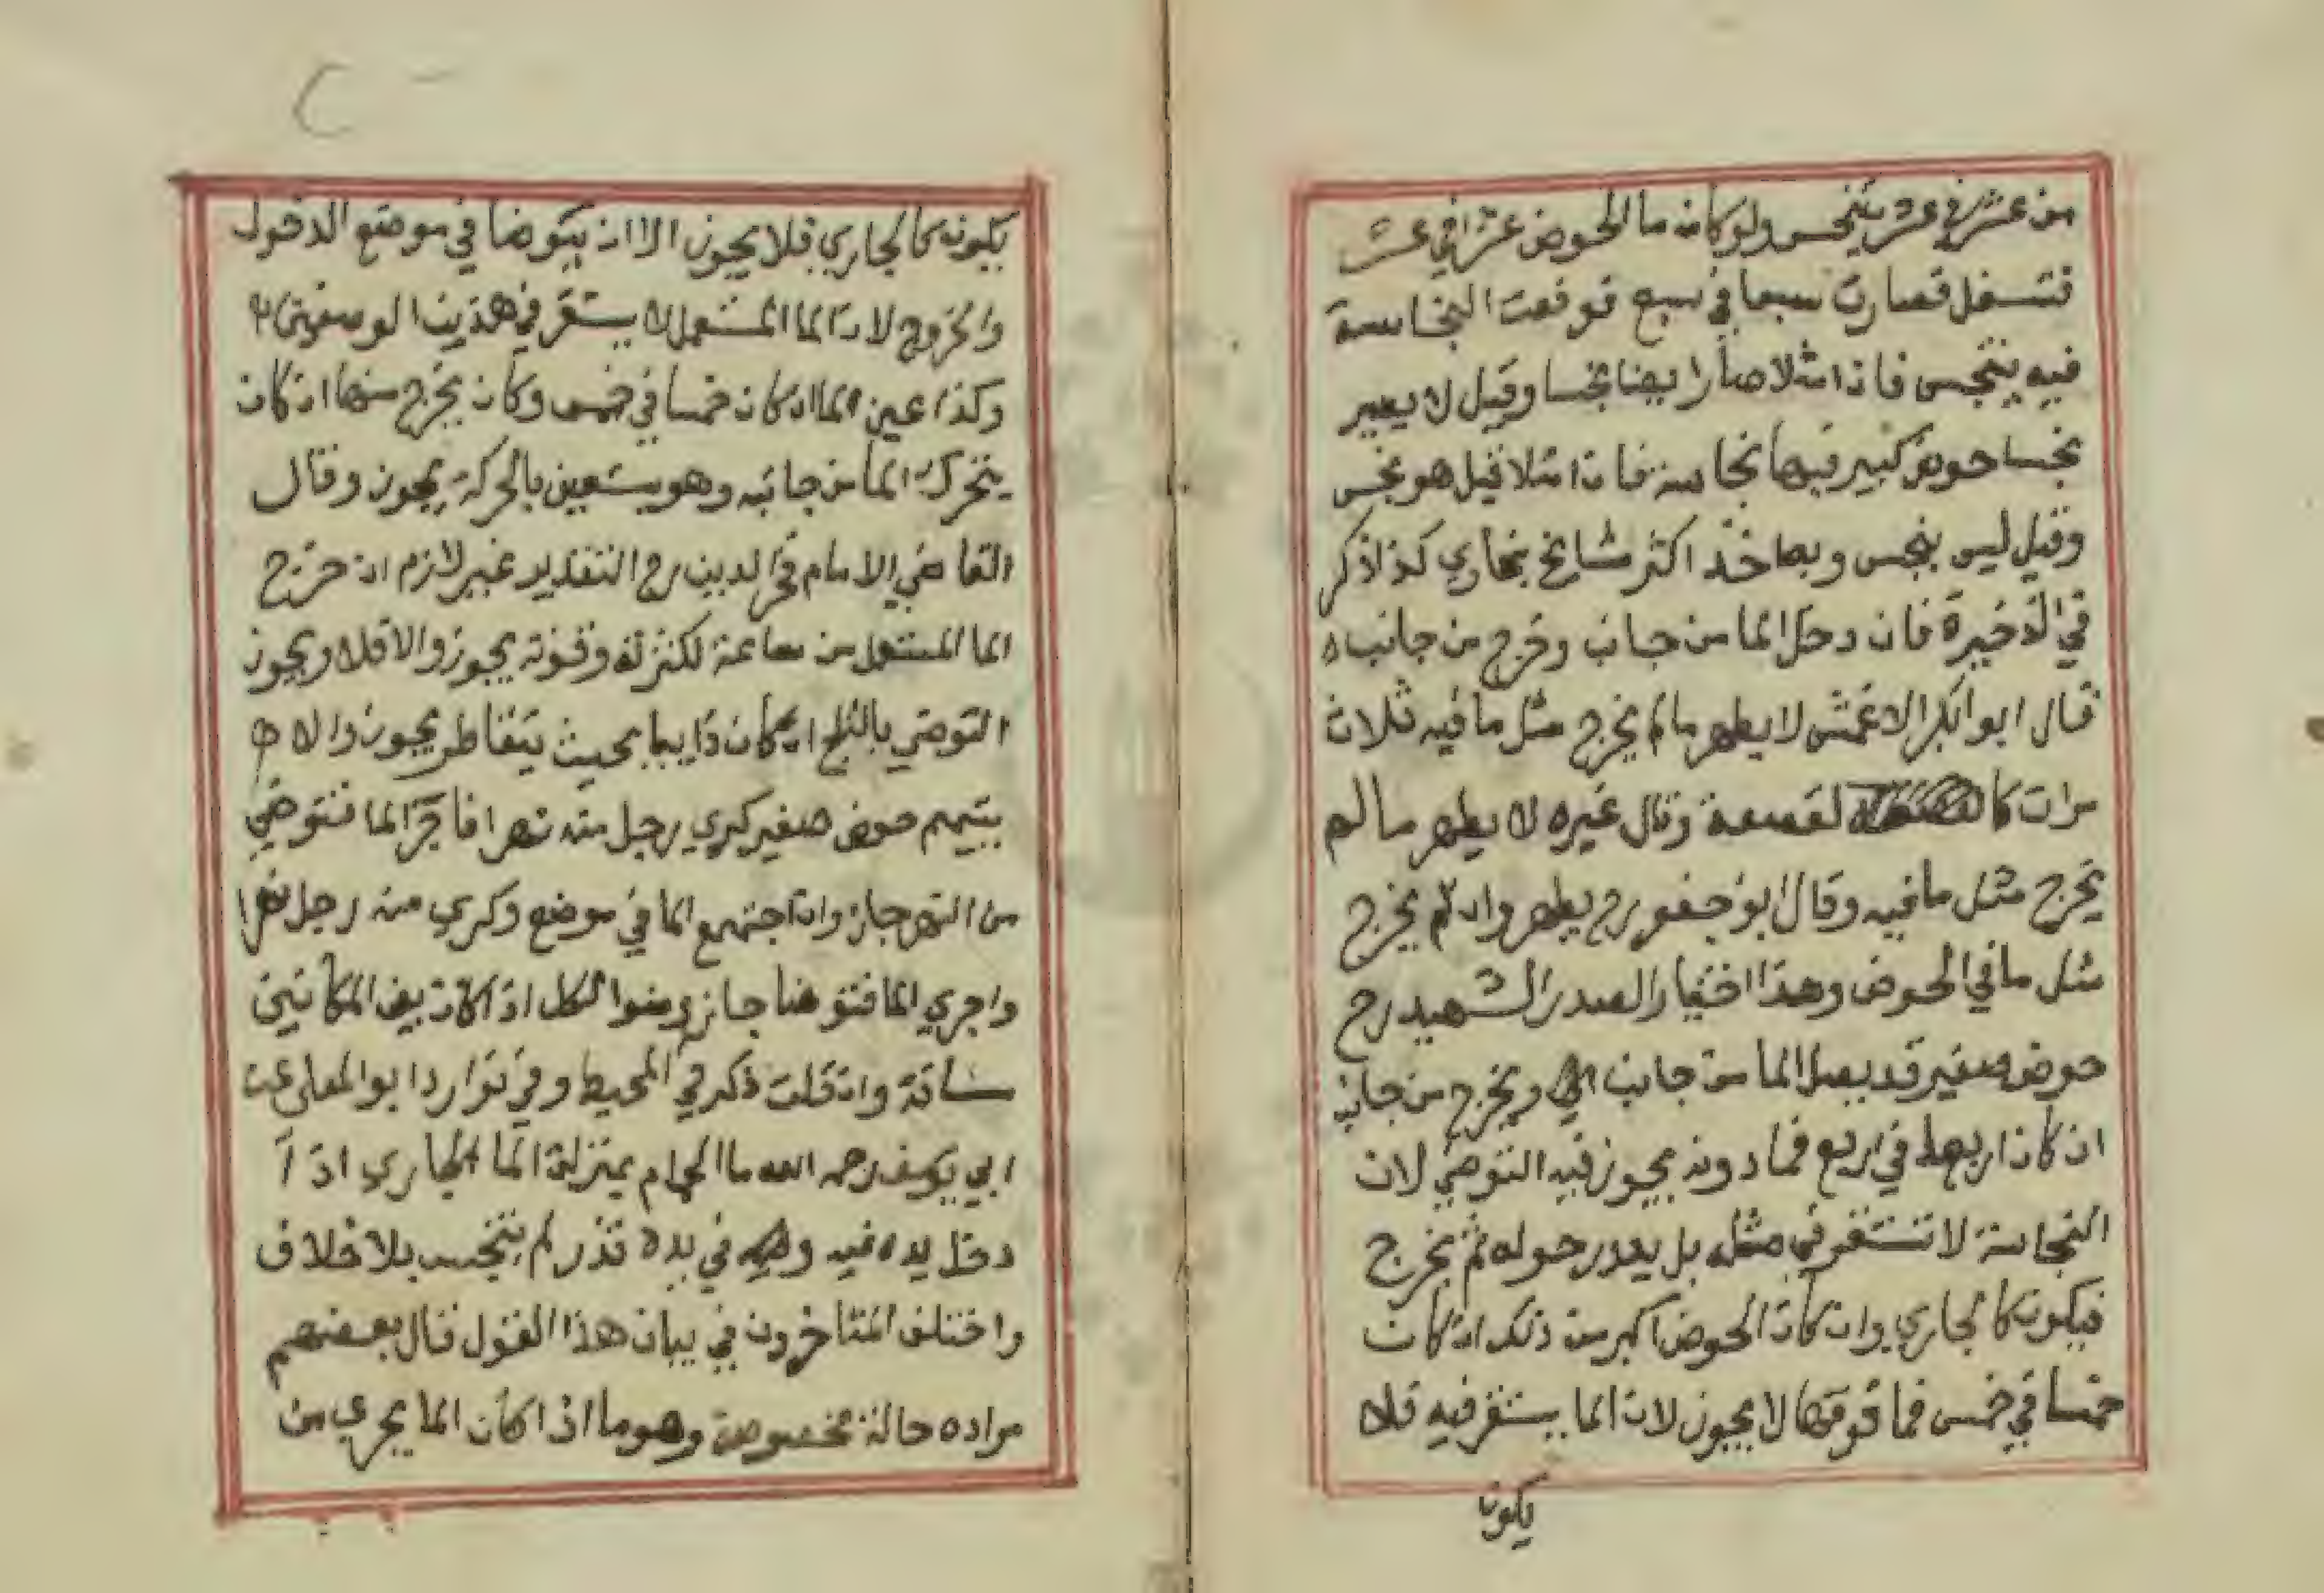 من عشر في عشر يتنجس ولو كان ما الحوض عشرا في عشر
فتسفل فصارت سبعا في سبع فوقعت النجاسة
فيه يتنجس فان امتلا صار ايضا نجسا وقيل لا يصير
نجسا حوض كبير فيها نجاسة فان امتلا قيل هو نجس
وقيل ليس بنجس وبه اخذ اكثر مشايخ بخاري كذا ذكر
في الذخيرة فان دخل الما من جانب وخرج من جانب
قال ابو ابكر الاعمش لا يطهر ما لم يخرج مثل ما فيه ثلاث
مرات كا لقصعة وقال غيره لا يطهر ما لم
يخرج مثل ما فيه وقال ابو جعفر رح يطهر وان لم يخرج
مثل ما في الحوض وهذا اختيار الصدر الشهيد رح
حوض صغير قد يصل الما من جانب ويخرج من جانب
ان كان اربعا في اربع فما دونه يجوز فيه التوضي لان
النجاسة لا تستقر في مثله بل يدور حوله ثم يخرج
فيكون كا لجاري وان كان الحوض اكبر من ذلك ان كان
خمسا في خمس فما فوقها لا يجوز لان الما يستقر فيه فلا
يكون
يكون كا لجاري فلا يجوز الا ان يتوضا في موضع الدخول
والخروج لان الما المستعمل لا يستقر في هذين الوصفين
وكذا عين الما ان كان خمسا في خمس وكان يخرج منها ان كان
يتحرك الما من جانبه وهو يستعين بالحركة يجوز وقال
القاضي الامام فخر الدين رح التقدير غير لازم ان خرج
الما المستعمل من ساعته لكثرته وقوته يجوز والا فلا ويجوز
التوضي بالثلج ان كان ذايبا بحيث يتقاطر يجوز والا
يتيمم حوض صغير كري رجل منه نهرا فاجرا الما فتوضي
من النهر جاز وان اجتمع الما في موضع وكري منه رجل نهرا
واجري الما فتوضا جاز وضوا الكل اذا كان بين المكانين
مسافة وان قلت ذكر في المحيط وفي نوادر ابو المعلى عن
ابي يوسف رحمه الله ما الحمام بمنزلة الما الجاري اذ ا
دخل يده فيه وفي يده قذر لم يتنجس بلا خلاف
واختلف المتاخرون في بيان هذا القول قال بعضهم
مراده حالة مخصوصة وهو ما اذا كان الما يجري من